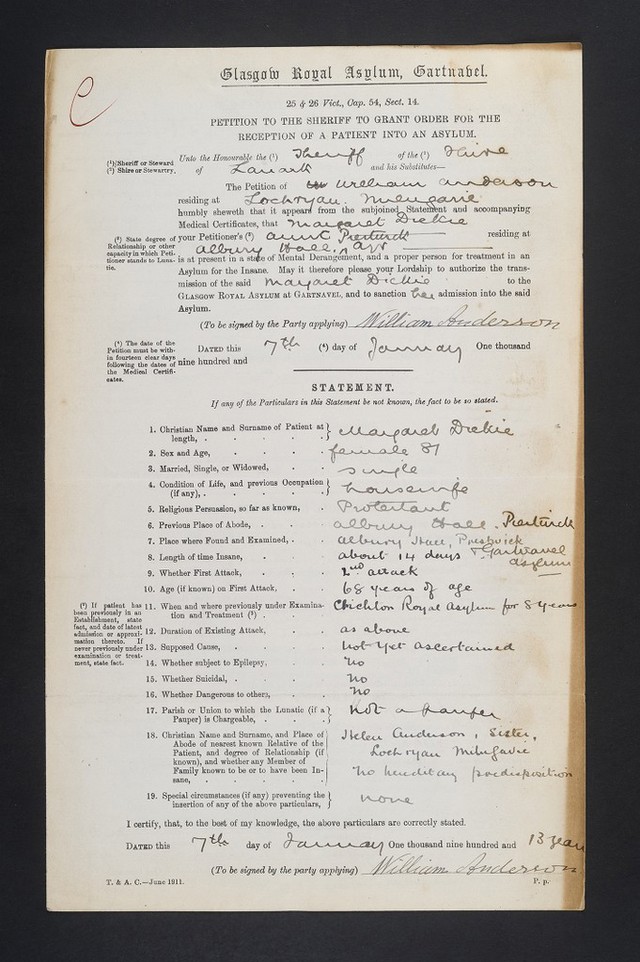 Glasgow Royal Asylum, Gartnavel.
25 & 26 Vict., Cap. 54, Sect. 14.
PETITION TO THE SHERIFF TO GRANT ORDER FOR THE
RECEPTION OF A PATIENT INTO AN ASYLUM.
(¹) Sheriff or Steward
(²) Shire or Stewartry.
Unto the Honourable the (¹) Sheriff of the (²) Shire
of Lanark and his Substitutes—
The Petition of William Anderson
residing at Lochryan. Milngavie
humbly sheweth that it appears from the subjoined Statement and accompanying
Medical Certificates, that Margaret Dickie
(³) State degree of Relationship or other capacity in which Petitioner stands to Lunatic.
your Petitioner's (³) aunt Prestwick residing at
Albury Hall, Ayr
is at present in a state of Mental Derangement, and a proper person for treatment in an
Asylum for the Insane. May it therefore please your Lordship to authorize the trans-
mission of the said Margaret Dickie to the
GLASGOW ROYAL ASYLUM AT GARTNAVEL, and to sanction her admission into the said
Asylum.
(To be signed by the Party applying) William Anderson
(⁴) The date of the Petition must be within fourteen clear days following the dates of the Medical Certificates.
DATED this 7th (⁴) day of January One thousand
nine hundred and
STATEMENT.
If any of the Particulars in this Statement be not known, the fact to be so stated.
1. Christian Name and Surname of Patient at length, . Margaret Dickie
2. Sex and Age, female 81
3. Married, Single, or Widowed, single
4. Condition of Life, and previous Occupation (if any), . housewife
5. Religious Persuasion, so far as known, Protestant
6. Previous Place of Abode, albury Hall. Prestwick
7. Place where Found and Examined, albury Hall, Prestwick
8. Length of time Insane, about 14 days & Gartnavel asylum
9. Whether First Attack, 2nd attack
10. Age (if known) on First Attack, 68 years of age
(⁵) If patient has been previously in an Establishment, state fact, and date of latest admission or approximation thereto. If never previously under examination or treatment, state fact.
11. When and where previously under Examination and Treatment (⁵) . Crichton Royal Asylum for 8 years
12. Duration of Existing Attack, as above
13. Supposed Cause, not yet ascertained
14. Whether subject to Epilepsy, no
15. Whether Suicidal, no
16. Whether Dangerous to others, no
17. Parish or Union to which the Lunatic (if a Pauper) is Chargeable, not a pauper
18. Christian Name and Surname, and Place of Abode of nearest known Relative of the Patient, and degree of Relationship (if known), and whether any Member of Family known to be or to have been Insane, Helen Anderson, Sister,
Lochryan Milngavie
no hereditary predisposition
19. Special circumstances (if any) preventing the insertion of any of the above particulars, none
I certify, that, to the best of my knowledge, the above particulars are correctly stated.
DATED this 7th day of January One thousand nine hundred and 13 years
(To be signed by the party applying) William Anderson
T. & A. C.—June 1911.
P. p.